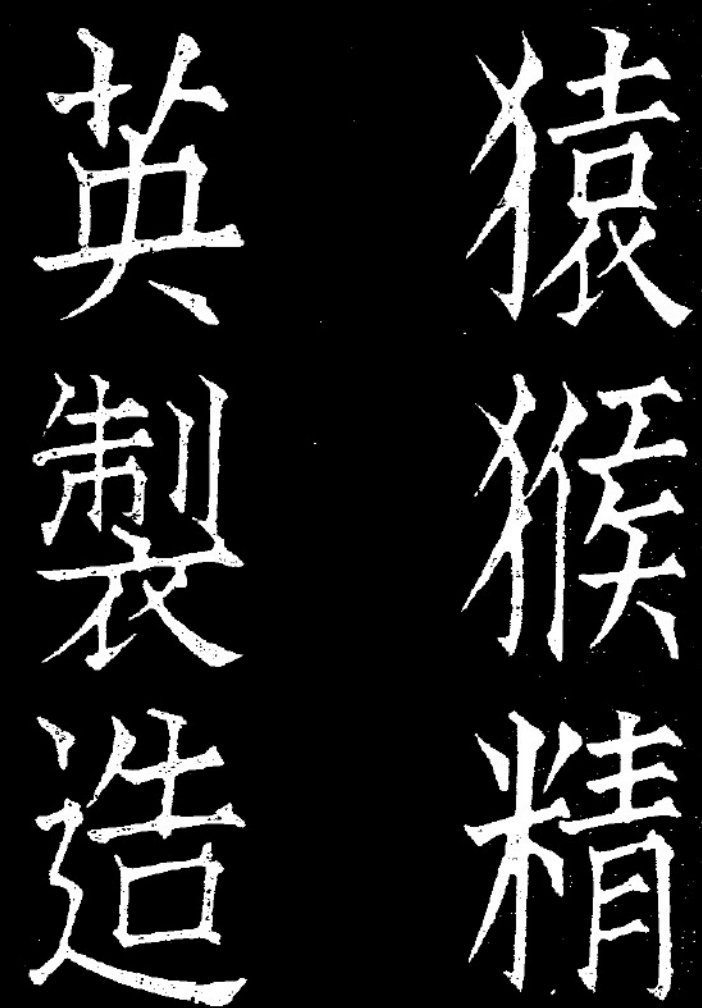 猿猴精
英製造